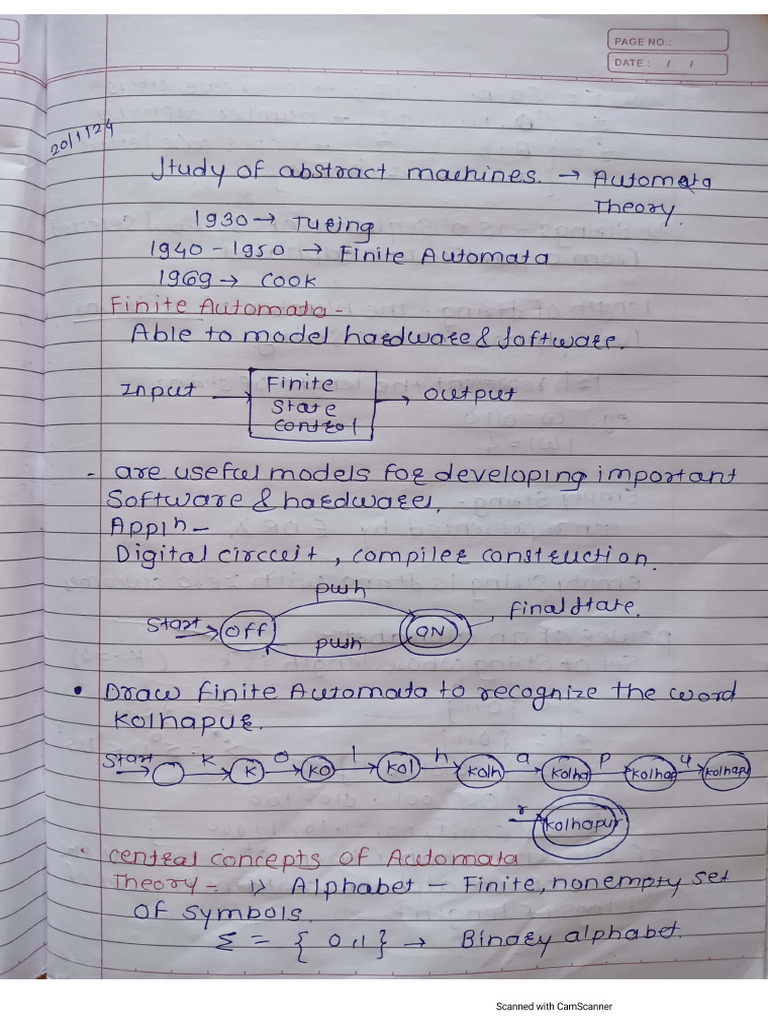 PAGE NO.:
DATE : / /
20/1/24
Study of abstract machines → Automata
Theory.
1930 → Turing
1940 - 1950 → Finite Automata
1969 → Cook
Finite Automata -
Able to model hardware & software.
Input → Finite State Control → output
- are useful models for developing important
Software & hardware.
Appln -
Digital circuit, compiler construction.
push
Start → OFF push ON final state.
• Draw finite Automata to recognize the word
Kolhapur.
Start k o l h a p u
K ko kol kolh kolha kolhap kolhapu
r kolhapur
• central concepts of Automata
Theory - 1) Alphabet - Finite, nonempty set
of symbols.
Σ = { 0,1} → Binary alphabet.
Scanned with CamScanner